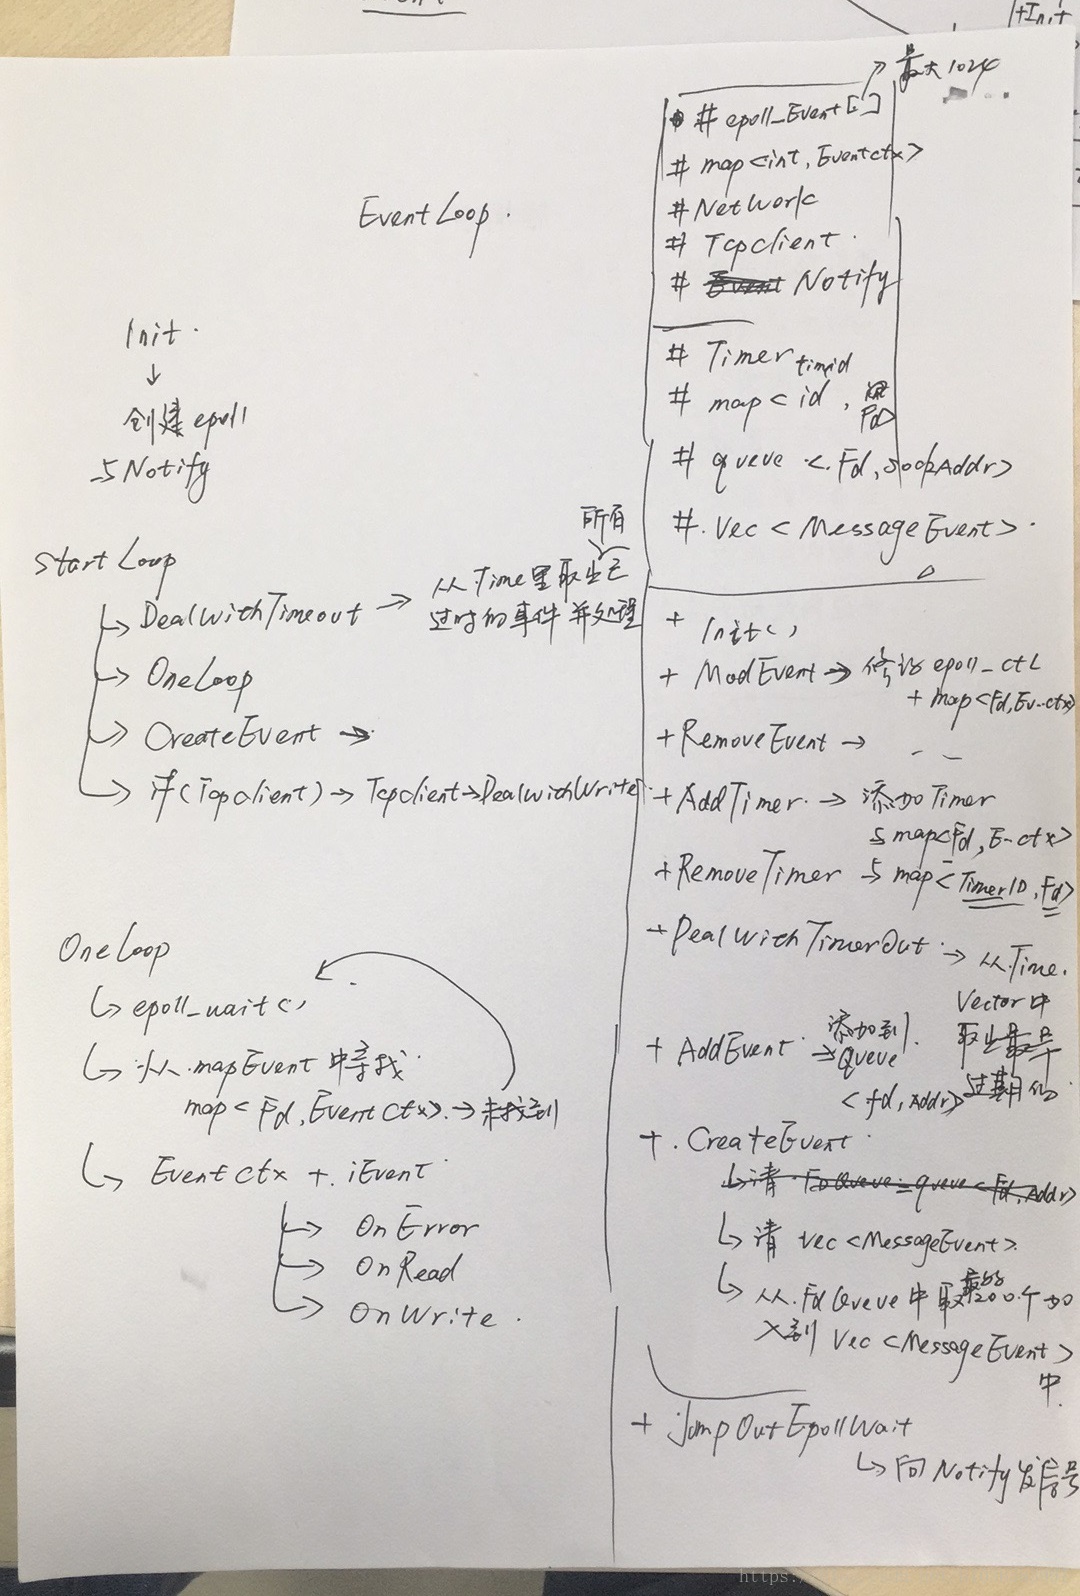 +Init
EventLoop.
Init.
↓
创建epoll
与Notify
StartLoop
↳ DealWithTimeout → 从Time里取出已
所有
过时的事件并处理
↳ OneLoop
↳ CreateEvent →
↳ if(Tcpclient) → Tcpclient→DealwithWrite
OneLoop
↳ epoll_wait()
↳ 从mapEvent中寻找
map<Fd,EventCtx> → 未找到
↳ Eventctx + iEvent
↳ OnError
↳ OnRead
↳ OnWrite.
→ 最大1024
# epoll_Event[]
# map<int, Eventctx>
# NetWork
# Tcpclient
# Notify
# Timer
timid
# map<id, Fd>
# queue <Fd, SockAddr>
# Vec <MessageEvent>.
+ Init()
+ ModEvent → 修改epoll_ctl
+ map<Fd,Ev-ctx>
+ RemoveEvent → - -
+ AddTimer. → 添加Timer
与map<Fd,E-ctx>
+ RemoveTimer 与map<TimerID,Fd>
+ DealWithTimerOut → 从Time.
Vector中
取出最早
过期的
+ AddEvent → 添加到
Queue
<fd,Addr>
+ CreateEvent
↳ 清 FdQueue = queue<Fd,Addr>
↳ 清 vec<MessageEvent>
↳ 从FdQueue中取200个加
入到 Vec<MessageEvent>
中
+ JumpOutEpollWait
↳ 向Notify发信号